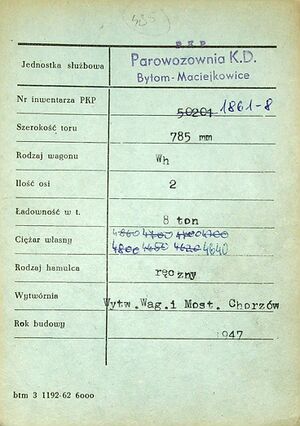 PKP
Jednostka służbowa Parowozownia K.D.
Bytom-Maciejkowice
Nr inwentarza PKP 50201 1861-8
Szerokość toru 785 mm
Rodzaj wagonu Wh
Ilość osi 2
Ładowność w t. 8 ton
Ciężar własny
4800 4650 4620 4640
Rodzaj hamulca ręczny
Wytwórnia Wytw.Wag.i Most. Chorzów
Rok budowy 1947
btm 3 1192-62 6000